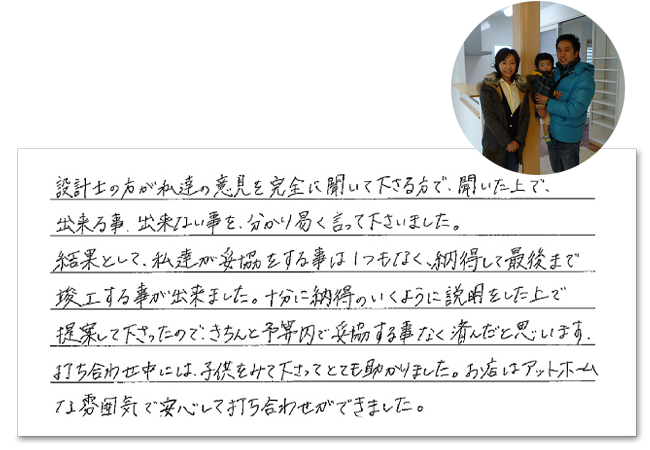 設計士の方が私達の意見を完全に聞いて下さる方で、聞いた上で、
出来る事、出来ない事を、分かり易く言って下さいました。
結果として、私達が妥協をする事は1つもなく、納得して最後まで
竣工する事が出来ました。十分に納得のいくように説明をした上で
提案して下さったので、きちんと予算内で妥協する事なく済んだと思います.
打ち合わせ中には、子供をみて下さってとても助かりました。お店はアットホーム
な雰囲気で安心して打ち合わせができました。